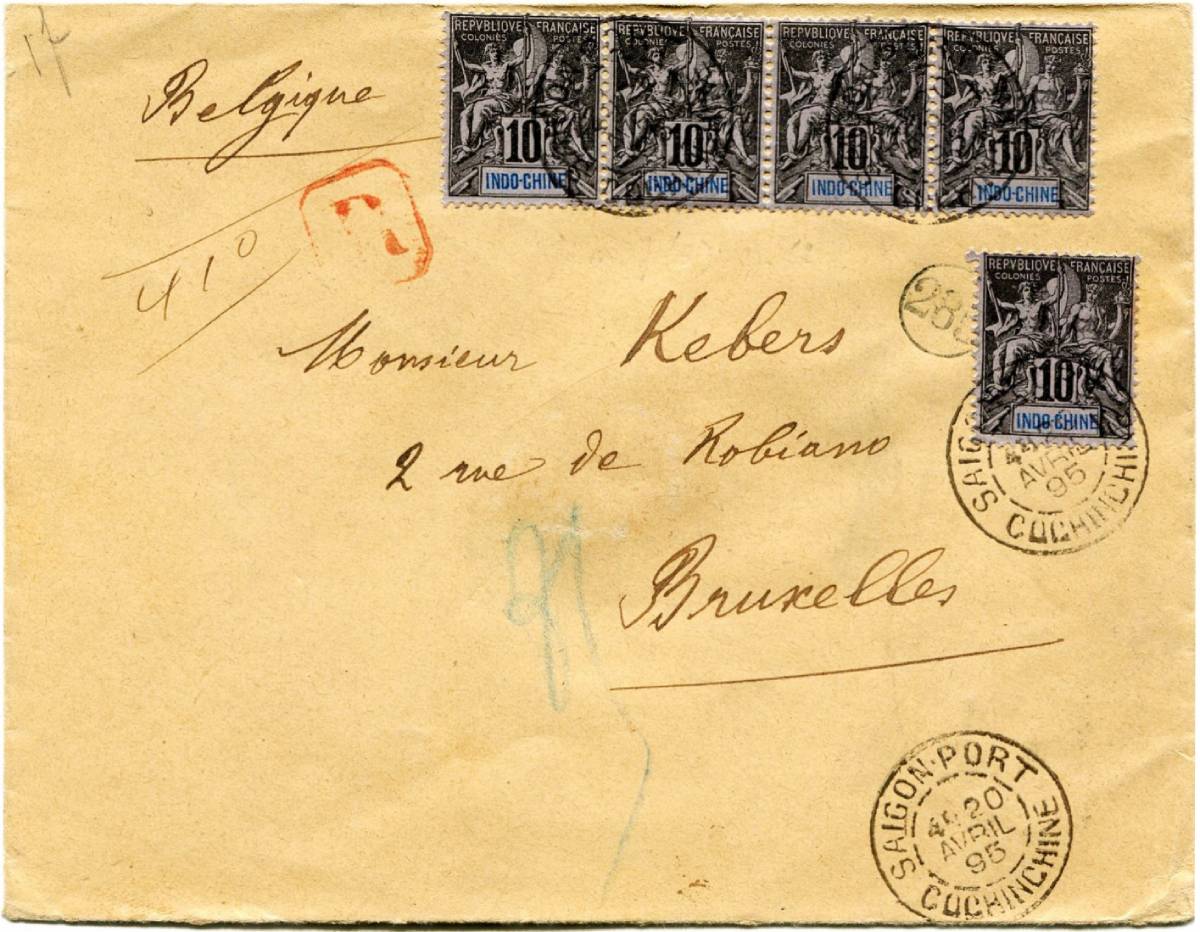 17
Belgique
REPVBLIQUE FRANÇAISE
COLONIES POSTES
10
INDO-CHINE
REPVBLIQUE FRANÇAISE
COLONIES POSTES
10
INDO-CHINE
REPVBLIQUE FRANÇAISE
COLONIES POSTES
10
INDO-CHINE
REPVBLIQUE FRANÇAISE
COLONIES POSTES
10
INDO-CHINE
R
410
REPVBLIQUE FRANÇAISE
COLONIES POSTES
10
INDO-CHINE
Monsieur Kebers
2 rue de Robiano
Bruxelles
AVRIL
95
COCHINCHI
SAIGON-PORT
20
AVRIL
95
COCHINCHINE